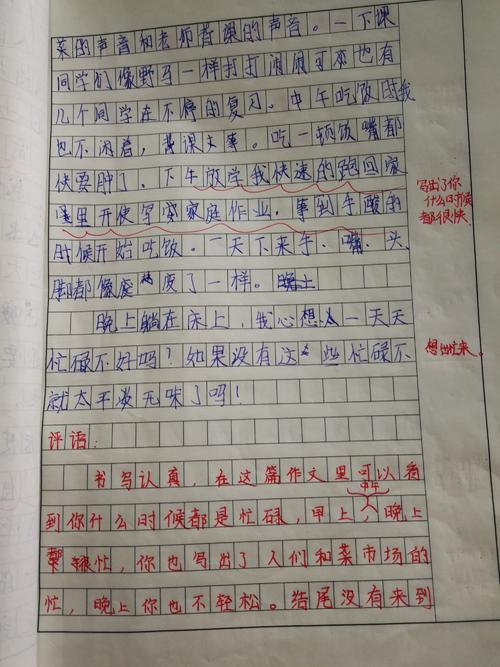 菜的声音和老师哲课的声音。一下课
同学们像野马一样打打闹闹可本也有
几个同学在不停的复习。中午吃饭时我
也不闲着,背课文事。吃一顿饭嘴都
快要肿了、下午放学我快速的跑回家
里开使写家庭作业,事到手酸的
时候开始吃饭。一天下来手、嘴、头、
脚都像废了一样。晚上
晚上躺在床上,我心想人一天天
忙碌不好吗?如果没有这些忙碌不
就太平淡无味了吗!
写出了你
什么时候
都很快
想出忙来。
评语:
书写认真,在这篇作文里可以看
到你什么时候都是忙碌,早上,中午,晚上
很忙,你也写出了人们和菜市场的
忙,晚上你也不轻松。结尾没有来到